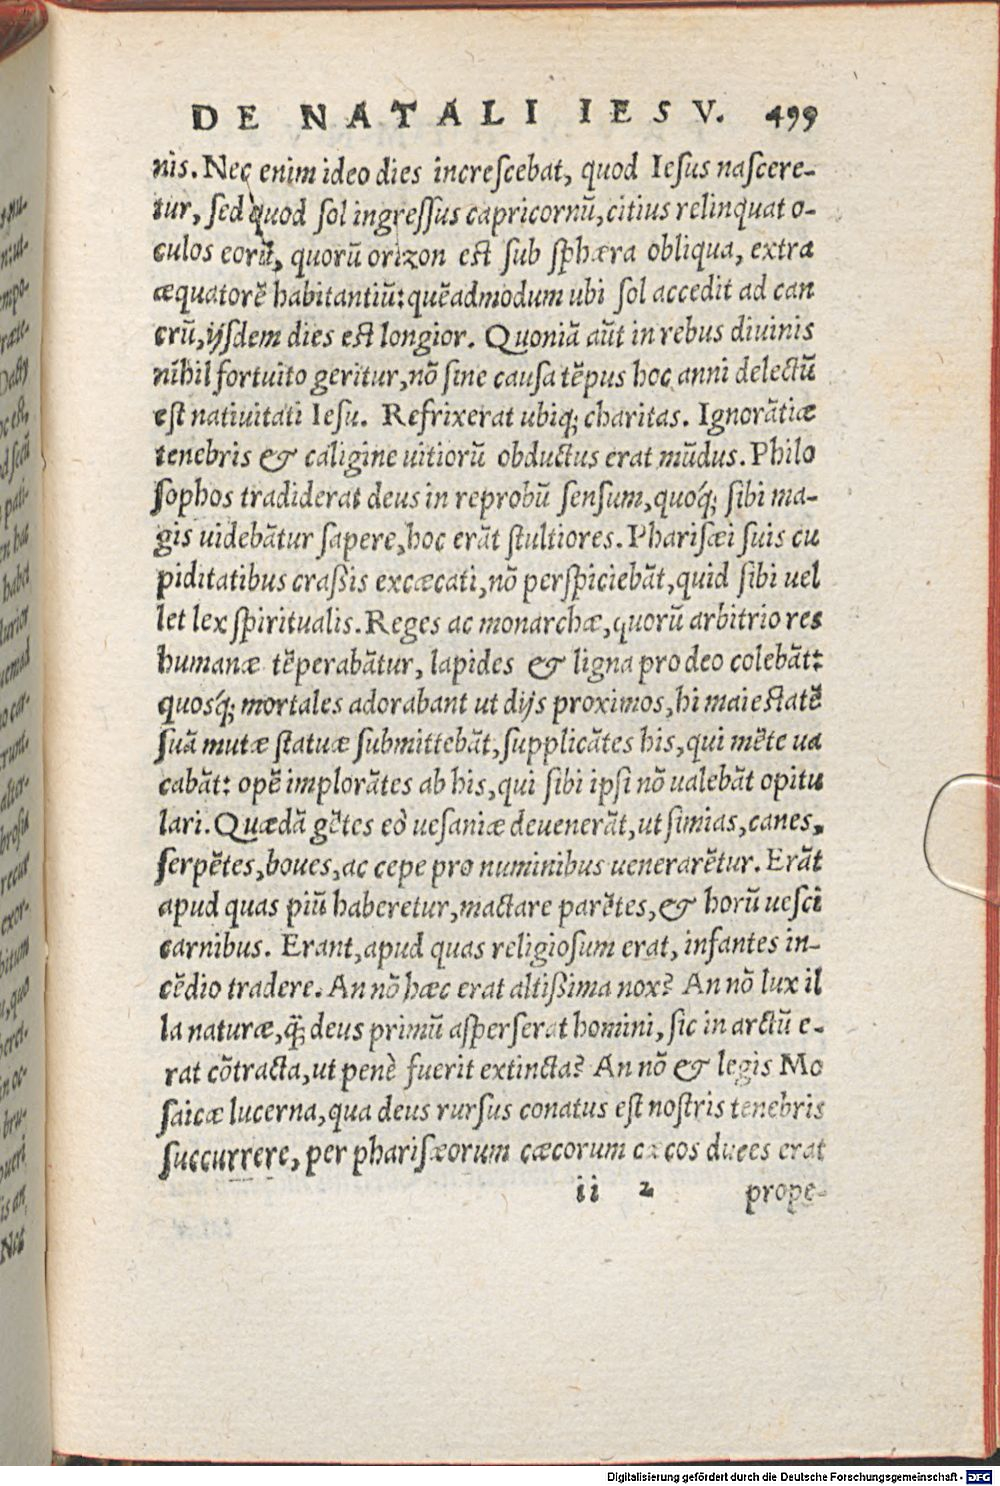 DE NATALI IESV. 499
nis. Nec enim ideo dies increscebat, quod Iesus nascere-
tur, sed quod sol ingressus capricornũ, citius relinquat o-
culos eorũ, quorũ orizon est sub sphæra obliqua, extra
æquatorẽ habitantiũ: quẽadmodum ubi sol accedit ad can
crũ, ijsdem dies est longior. Quoniã aũt in rebus diuinis
nihil fortuito geritur, nõ sine causa tẽpus hoc anni delectũ
est natiuitati Iesu. Refrixerat ubiq; charitas. Ignorãtiæ
tenebris & caligine uitiorũ obductus erat mũdus. Philo
sophos tradiderat deus in reprobũ sensum, quoq́; sibi ma-
gis uidebãtur sapere, hoc erãt stultiores. Pharisæi suis cu
piditatibus craßis excæcati, nõ perspiciebãt, quid sibi uel
let lex spiritualis. Reges ac monarchæ, quorũ arbitrio res
humanæ tẽperabãtur, lapides & ligna pro deo colebãt:
quosq́; mortales adorabant ut dijs proximos, hi maiestatẽ
suã mutæ statuæ submittebãt, supplicãtes his, qui mẽte ua
cabãt: opẽ implorãtes ab his, qui sibi ipsi nõ ualebãt opitu
lari. Quædã gẽtes eò uesaniæ deuenerãt, ut simias, canes,
serpẽtes, boues, ac cepe pro numinibus uenerarẽtur. Erãt
apud quas piũ haberetur, mactare parẽtes, & horũ uesci
carnibus. Erant, apud quas religiosum erat, infantes in-
cẽdio tradere. An nõ hæc erat altißima nox? An nõ lux il
la naturæ, q̃; deus primũ asperserat homini, sic in arctũ e-
rat cõtracta, ut penè fuerit extincta? An nõ & legis Mo
saicæ lucerna, qua deus rursus conatus est nostris tenebris
succurrere, per pharisæorum cæcorum cæcos duces erat
ii 2 prope-
Nec
Digitalisierung gefördert durch die Deutsche Forschungsgemeinschaft - DFG